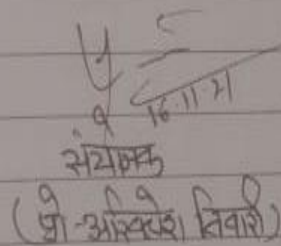 16.11.21
संयोजक
(प्रो-अखिलेश तिवारी)